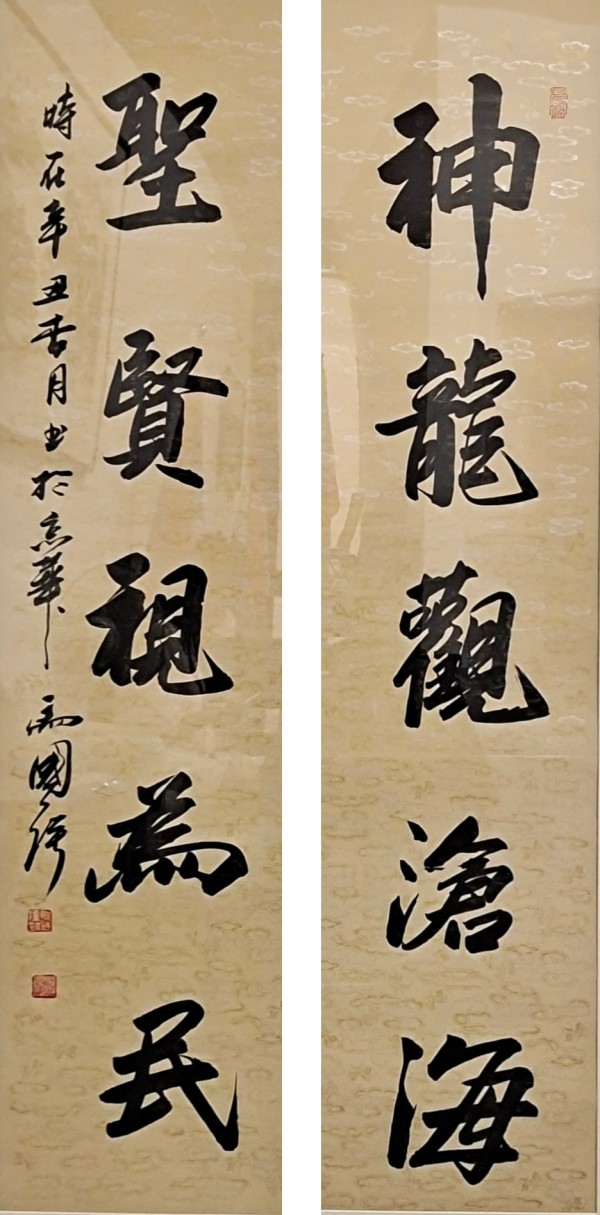 神龍觀滄海
聖賢視為民
時在辛丑杏月書於京華 國